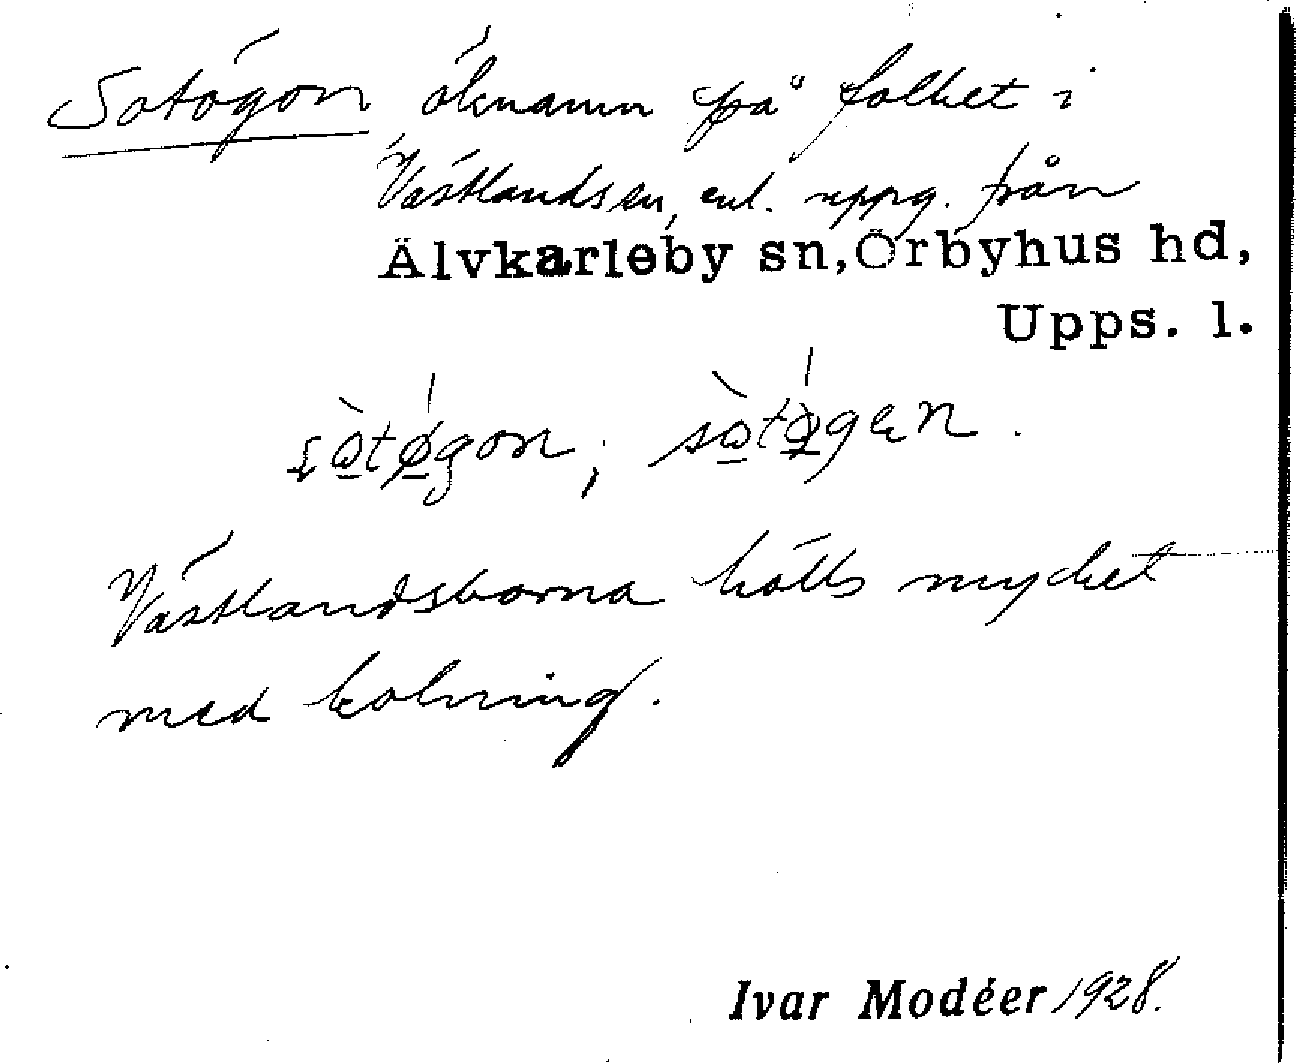 Sotögon, öknamn på folket i
Västlandssn, enl. uppg. från
Älvkarleby sn, Örbyhus hd,
Upps. l.
sòtǿgon; sòtǿgæn.
Västlandsborna hölls mycket
med kolning.
Ivar Modéer 1928.